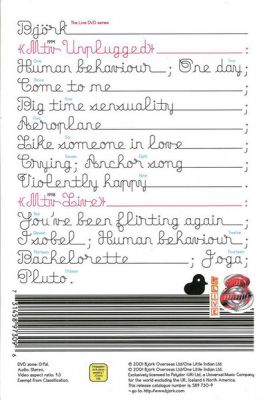 Björk The Live DVD series
1994
«Mtv Unplugged» :
One Two
Human behaviour ; One day ;
Three
Come to me ;
Four
Big time sensuality ;
Five
Aeroplane ;
Six
Like someone in love ;
Seven Eight
Crying ; Anchor song ;
Nine
Violently happy .
1998
«Mtv Live» :
Ten
You've been flirting again ;
Eleven Twelve
Isobel ; Human behaviour ;
Bachelorette ; Joga ;
Fifteen
Pluto .
LIVE
DVD zone: 0/Pal.
Audio: Stereo.
Video aspect ratio: 4:3
Exempt from Classification.
© 2001 Björk Overseas Ltd/One Little Indian Ltd.
℗ 2001 Björk Overseas Ltd/One Little Indian Ltd.
Exclusively licensed to Polydor (UK) Ltd, a Universal Music Company
for the world excluding the UK, Iceland & North America.
This release catalogue number is 589 730-9
→ go to: http://www.bjork.com/